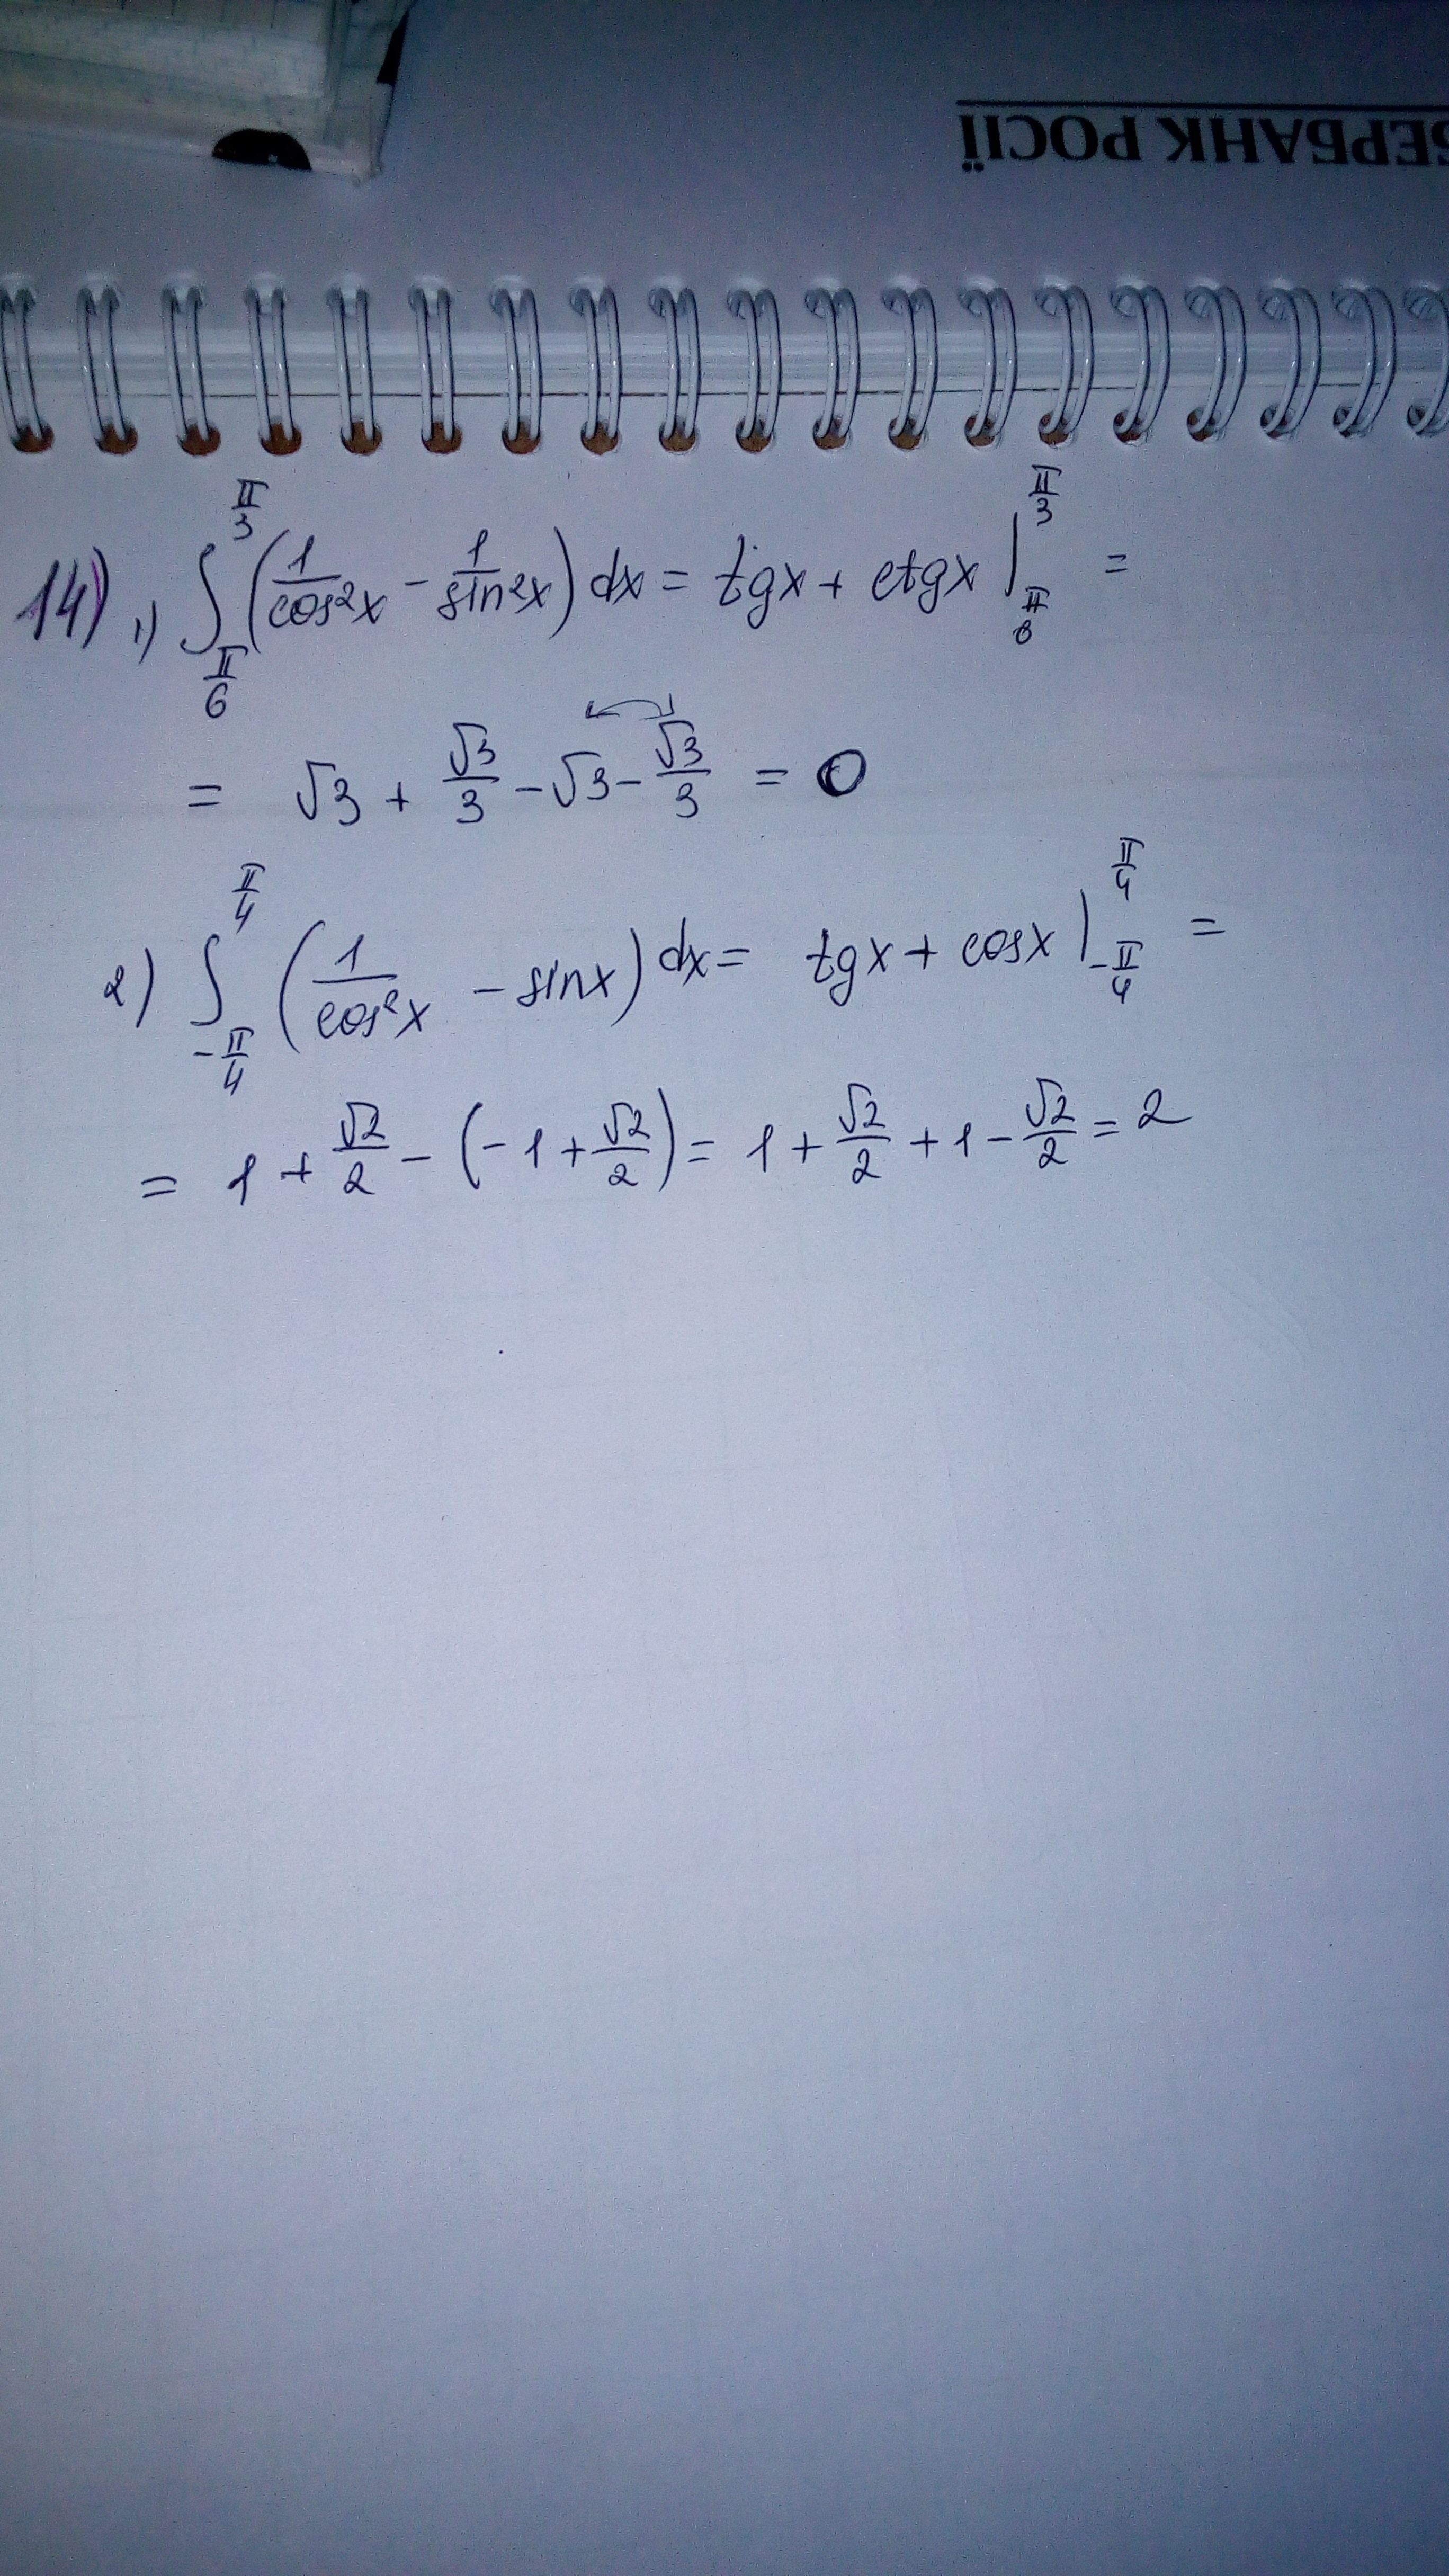 ЕРБАНК РОСІЇ
14) 1) ∫_{π/6}^{π/3} (1/cos²x - 1/sin²x) dx = tgx + ctgx |_{π/6}^{π/3} =
= √3 + √3/3 - √3 - √3/3 = 0
2) ∫_{-π/4}^{π/4} (1/cos²x - sinx) dx = tgx + cosx |_{-π/4}^{π/4} =
= 1 + √2/2 - (-1 + √2/2) = 1 + √2/2 + 1 - √2/2 = 2